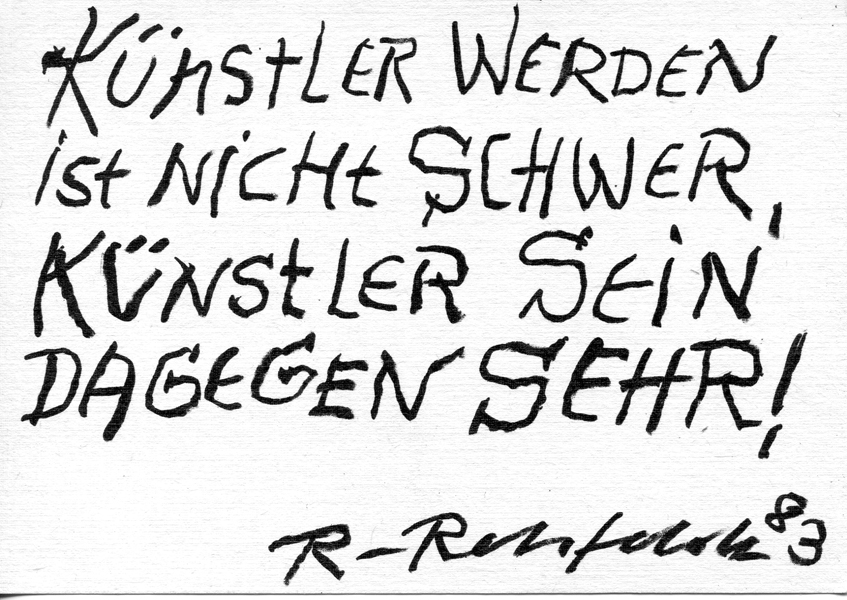 KÜNSTLER WERDEN
ist NICHt SCHWER,
KÜNStLER SEiN
DAGEGEN SEHR!
R-Rehfeldt 83